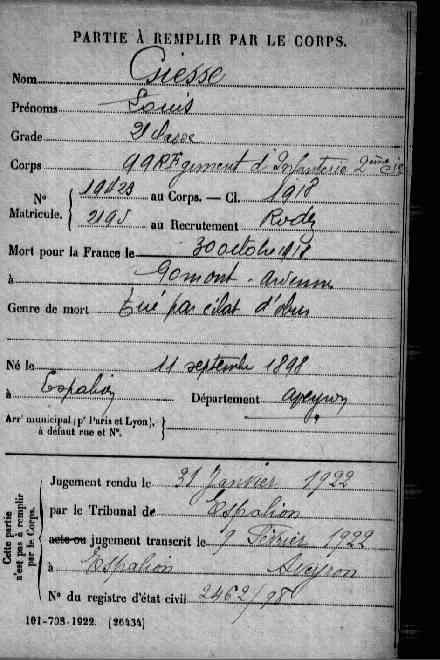 PARTIE À REMPLIR PAR LE CORPS.
Nom
Prénoms Louis
Grade 2e classe
Corps 99 Régiment d'Infanterie 2ème Cie
N° Matricule. { au Corps. — Cl. 1918
au Recrutement Rodez
Mort pour la France le 30 octobre 1918
à Gomont - Ardennes
Genre de mort Tué par éclat d'obus
Né le 11 septembre 1898
à Espalion Département Aveyron
Arrt municipal (pr Paris et Lyon), à défaut rue et N°. }
Cette partie n'est pas à remplir par le Corps.
Jugement rendu le 31 Janvier 1922
par le Tribunal de Espalion
acte ou jugement transcrit le 9 Février 1922
à Espalion Aveyron
N° du registre d'état civil 2462/98
101-708-1922. [26434]